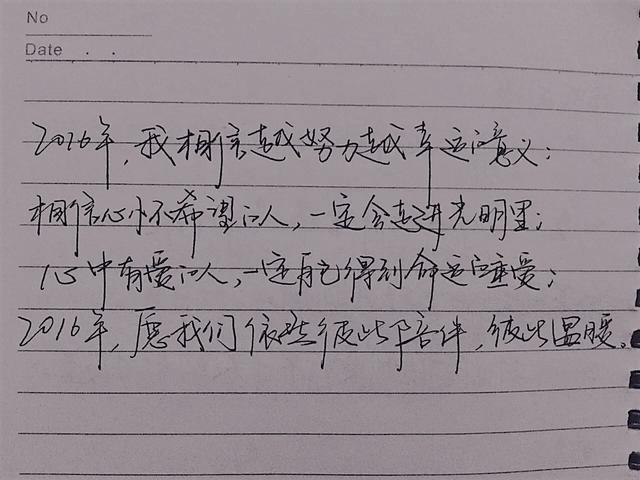 No
Date . .
2016年，我相信越努力越幸运的意义；
相信心怀希望的人，一定会走进光明里；
心中有爱的人，一定能得到命运的垂爱；
2016年，愿我们依然彼此陪伴，彼此温暖。